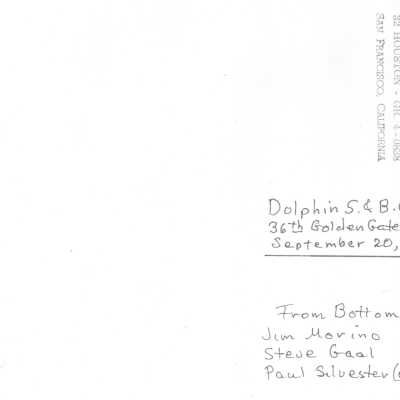 32 HOUSTON - GR. 4-0838
SAN FRANCISCO, CALIFORNIA
Dolphin S. & B.
36th Golden Gate
September 20,
From Bottom
Jim Morino
Steve Gaal
Paul Silvester